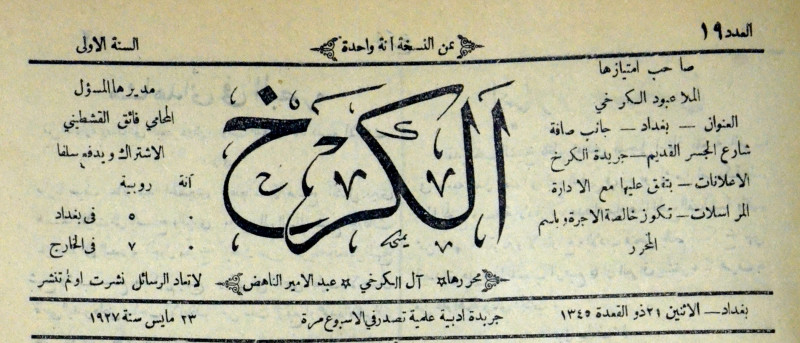 العدد ١٩
ثمن النسخة آنة واحدة
السنة الاولى
صاحب امتيازها
الملا عبود الكرخي
العنوان – بغداد – جانب
شارع الجسر القديم – جريدة الكرخ
الاعلانات – يتفق عليها مع الادارة
المراسلات – تكون خالصة الاجرة وباسم
المحرر
الكرخ
مديرها المسؤل
المحامي فائق القشطيني
الاشتراك ويدفع سلفا
آنة روبية
٠ ٥ في بغداد
٠ ٧ في الخارج
محررها آل الكرخي عبد الامير الناهض
لاتعاد الرسائل نشرت او لم تنشر
بغداد – الاثنين ٢١ ذو القعدة ١٣٤٥
جريدة ادبية علمية تصدر في الاسبوع مرة
٢٣ مايس سنة ١٩٢٧